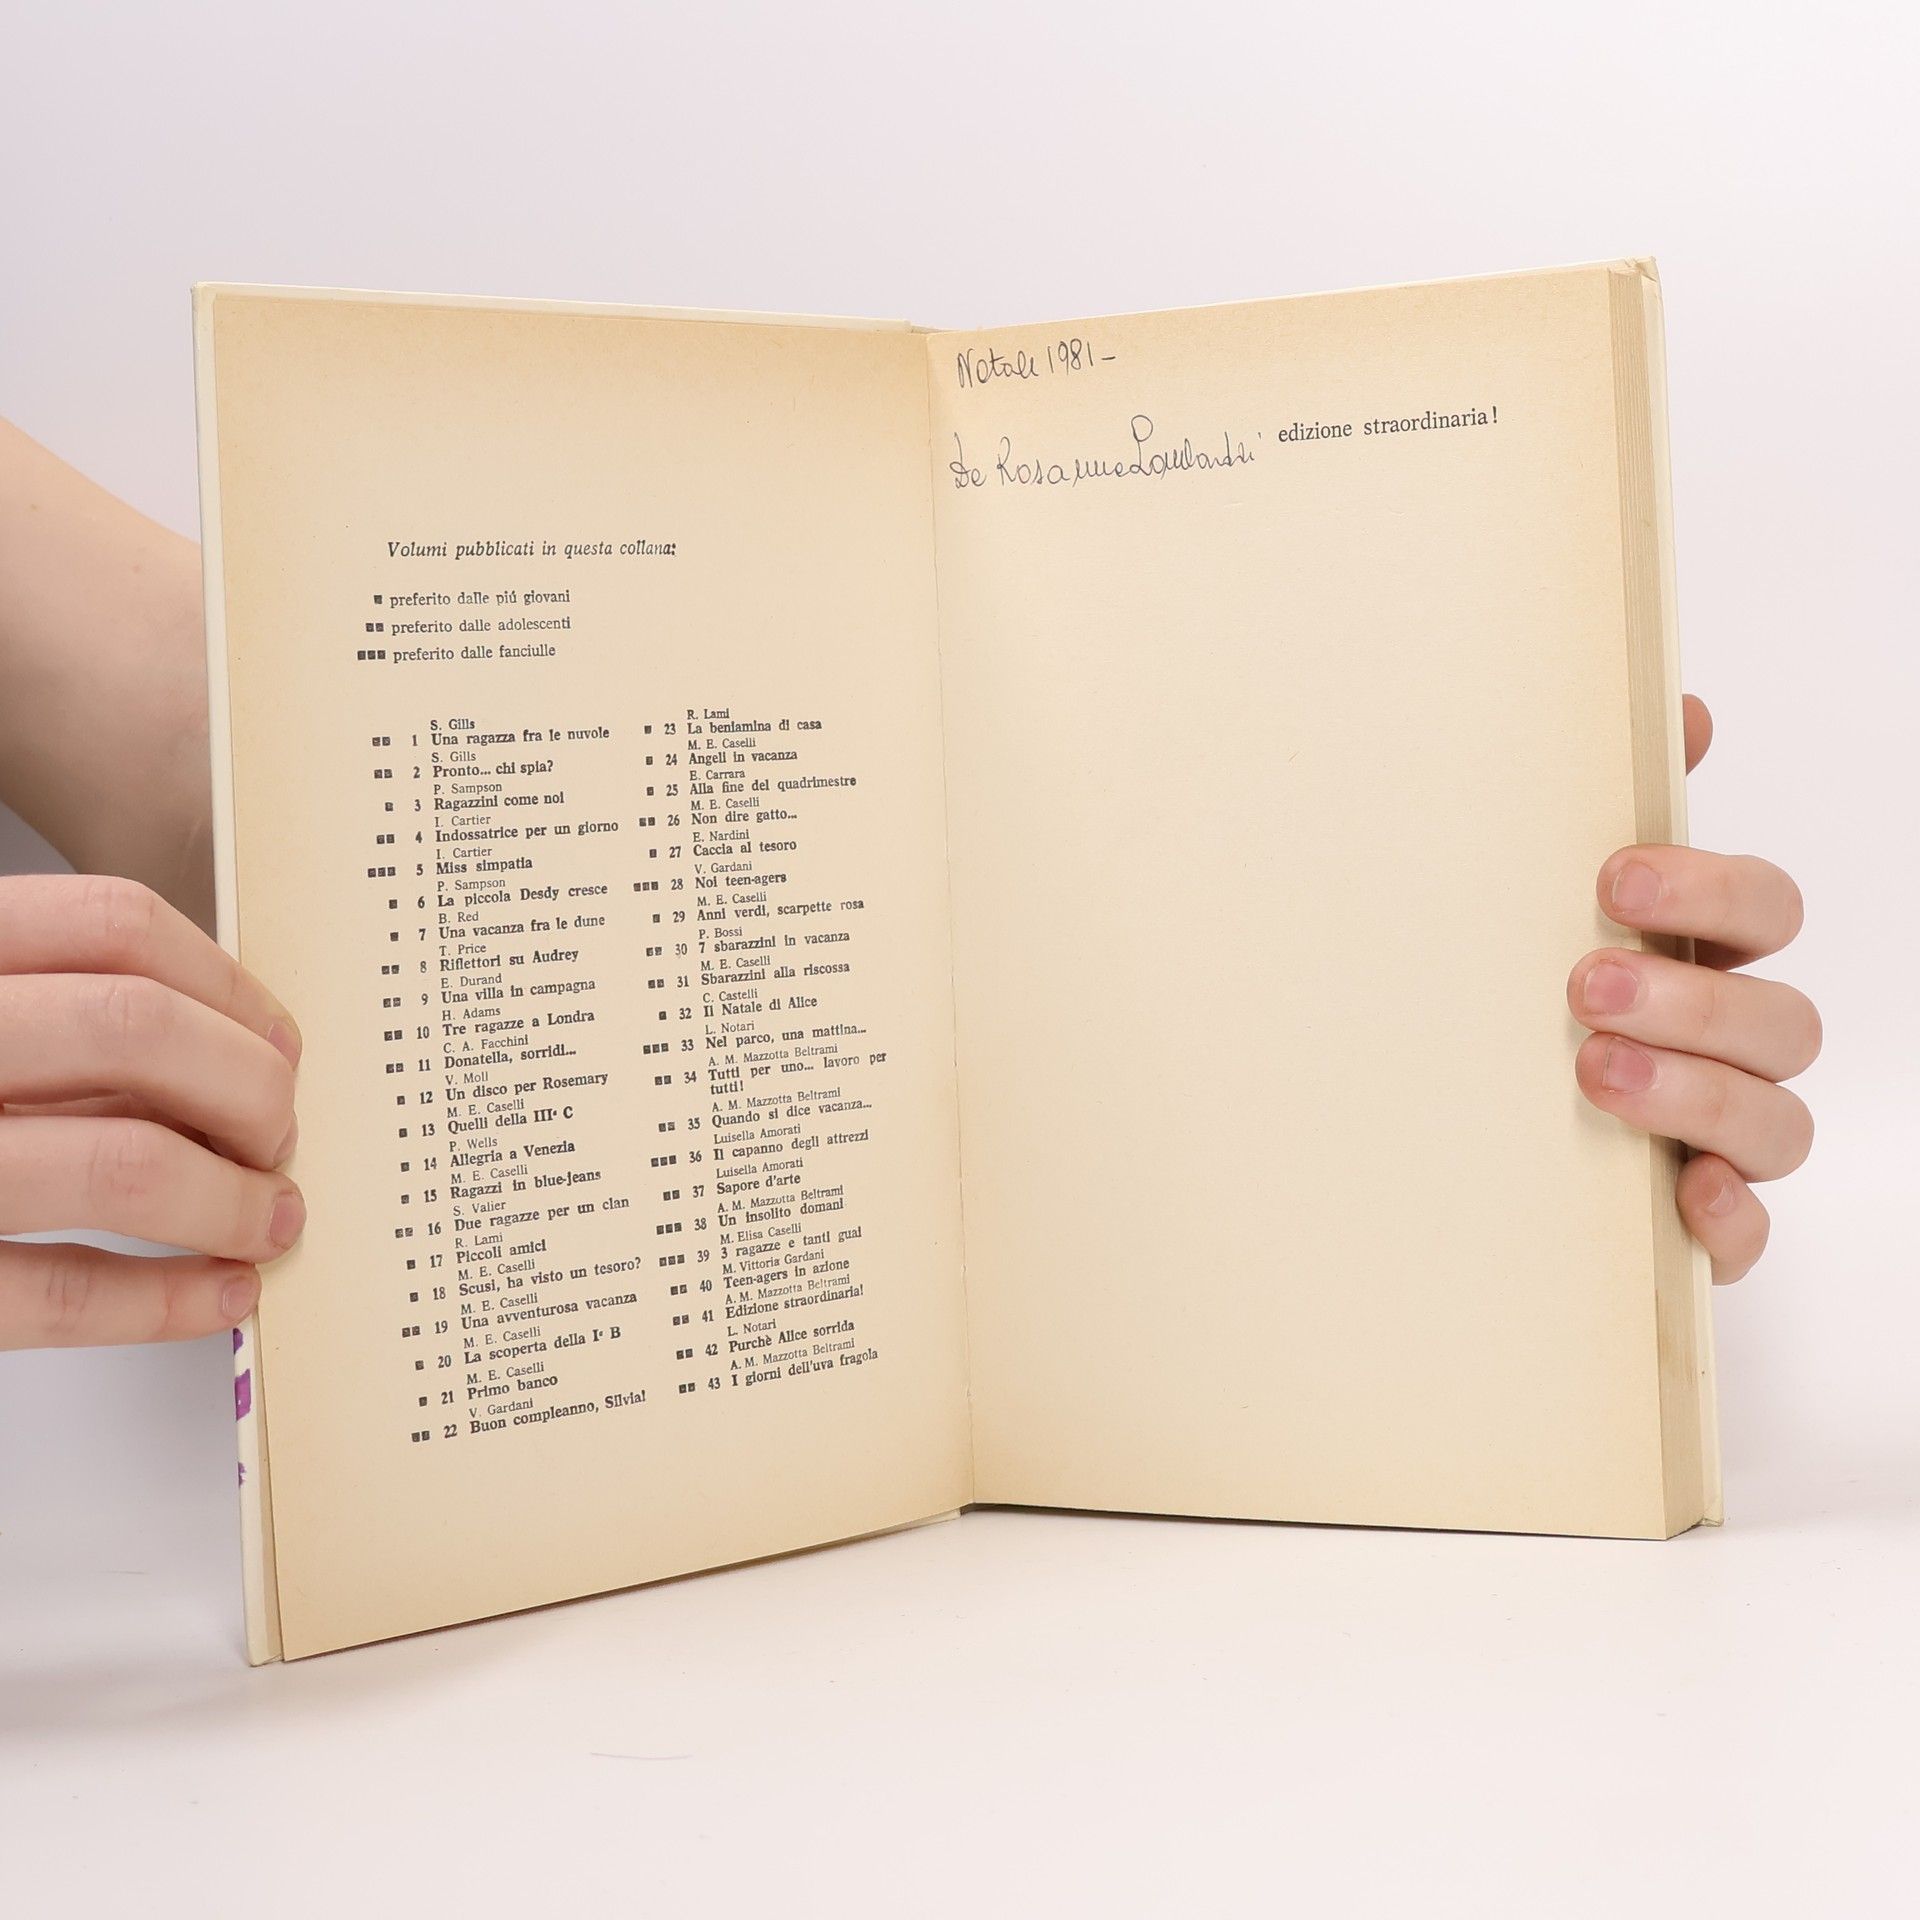 Volumi pubblicati in questa collana:
■ preferito dalle piú giovani
■■ preferito dalle adolescenti
■■■ preferito dalle fanciulle
S. Gills
■■ 1 Una ragazza fra le nuvole
S. Gills
■■ 2 Pronto... chi spia?
P. Sampson
■ 3 Ragazzini come noi
I. Cartier
■■ 4 Indossatrice per un giorno
I. Cartier
■■■ 5 Miss simpatia
P. Sampson
■ 6 La piccola Desdy cresce
B. Red
■ 7 Una vacanza fra le dune
T. Price
■■ 8 Riflettori su Audrey
E. Durand
■■ 9 Una villa in campagna
H. Adams
■■ 10 Tre ragazze a Londra
C. A. Facchini
■■ 11 Donatella, sorridi...
V. Moll
■ 12 Un disco per Rosemary
M. E. Caselli
■ 13 Quelli della IIIª C
P. Wells
■ 14 Allegria a Venezia
M. E. Caselli
■ 15 Ragazzi in blue-jeans
S. Valier
■■ 16 Due ragazze per un clan
R. Lami
■ 17 Piccoli amici
M. E. Caselli
■ 18 Scusi, ha visto un tesoro?
M. E. Caselli
■■ 19 Una avventurosa vacanza
M. E. Caselli
■ 20 La scoperta della Iª B
M. E. Caselli
■ 21 Primo banco
V. Gardani
■■ 22 Buon compleanno, Silvia!
R. Lami
■ 23 La beniamina di casa
M. E. Caselli
■ 24 Angeli in vacanza
E. Carrara
■ 25 Alla fine del quadrimestre
M. E. Caselli
■■ 26 Non dire gatto...
E. Nardini
■ 27 Caccia al tesoro
V. Gardani
■■■ 28 Noi teen-agers
M. E. Caselli
■ 29 Anni verdi, scarpette rosa
P. Bossi
■■ 30 7 sbarazzini in vacanza
M. E. Caselli
■■ 31 Sbarazzini alla riscossa
C. Castelli
■ 32 Il Natale di Alice
L. Notari
■■■ 33 Nel parco, una mattina...
A. M. Mazzotta Beltrami
■■ 34 Tutti per uno... lavoro per
tutti!
A. M. Mazzotta Beltrami
■■ 35 Quando si dice vacanza...
Luisella Amorati
■■■ 36 Il capanno degli attrezzi
Luisella Amorati
■■ 37 Sapore d'arte
A. M. Mazzotta Beltrami
■■■ 38 Un insolito domani
M. Elisa Caselli
■■■ 39 3 ragazze e tanti guai
M. Vittoria Gardani
■■ 40 Teen-agers in azione
A. M. Mazzotta Beltrami
■■ 41 Edizione straordinaria!
L. Notari
■■ 42 Purchè Alice sorrida
A. M. Mazzotta Beltrami
■■ 43 I giorni dell'uva fragola
Natale 1981-
edizione straordinaria!
Da Rosanna Lombardi